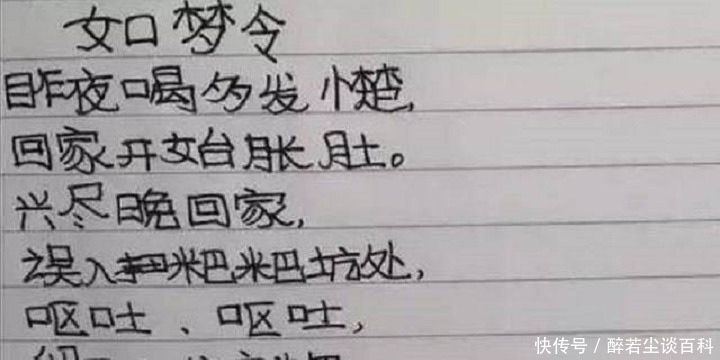 如梦令
昨夜喝多发憷,
回家开始胀肚。
兴尽晚回家,
误入粑粑坑处,
呕吐、呕吐,
快传号 / 醉若尘谈百科